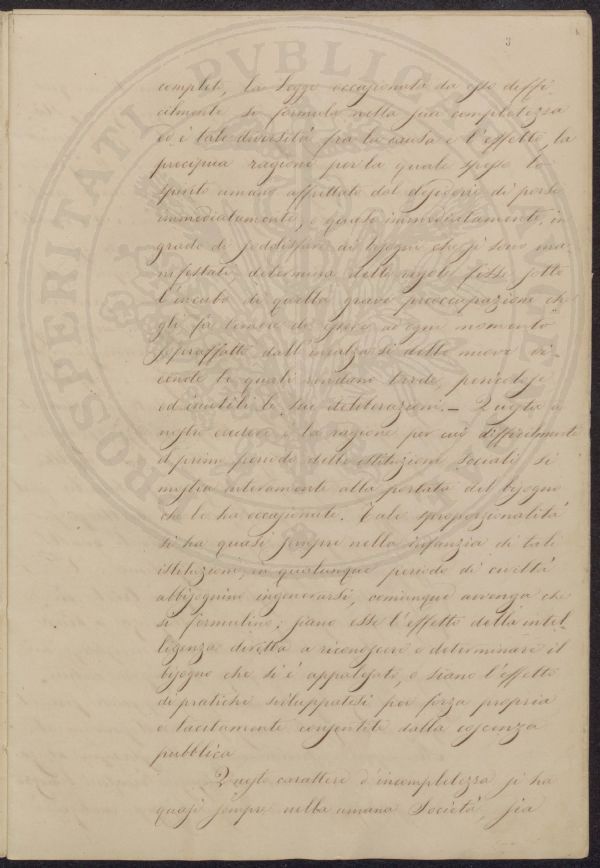 3
complete, la Legge occasionata da esso diffi-
cilmente si formula nella sua completezza
ed è tale diversità fra la causa e l'effetto, la
precipua ragione per la quale spesso lo
spirito umano affrettato dal desiderio di porsi
immediatamente, o quasi immediatamente, in
grado di soddisfare ai bisogni che si sono ma-
nifestati determina delle regole fisse sotto
l'incubo di quella grave preoccupazione che
gli fa temere di essere ad ogni momento
sopraffatto dall'incalzarsi delle nuove vi-
cende le quali rendano tarde, pericolose
ed inutili le sue deliberazioni. — Questa a
nostro credere è la ragione per cui difficilmente
il primo periodo delle istituzioni Sociali si
mostra interamente alla portata del bisogno
che le ha occasionate. Tale sproporzionalità
si ha quasi sempre nella infanzia di tali
istituzioni, in qualunque periodo di civiltà
abbisognino ingenerarsi, comunque avvenga che
si formulino; siano esse l'effetto della intel-
ligenza diretta a riconoscere e determinare il
bisogno che si è appalesato, o siano l'effetto
di pratiche sviluppatesi per forza propria
e tacitamente consentite dalla coscenza
pubblica
Questo carattere d'incompletezza si ha
quasi sempre nella umana Società, sia
PROSPERITATI PVBLICAE AVGENDAE